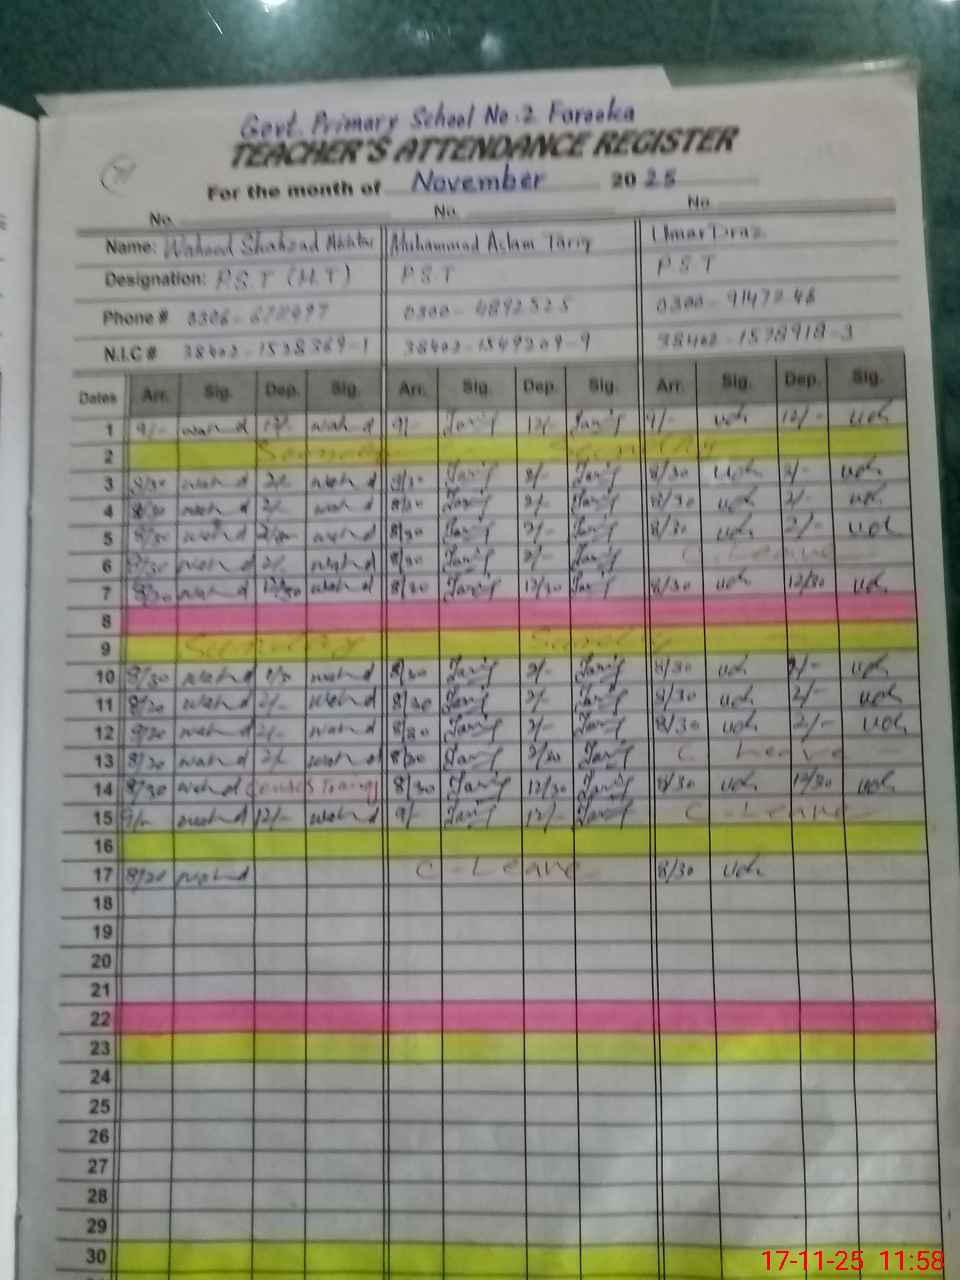 Govt. Primary School No.2 Farooka
TEACHER'S ATTENDANCE REGISTER
For the month of November 2025
No. No. No
Name: Waheed Shahzad Muhammad Aslam Tariq Umar Draz
Designation: P.S.T (H.T) P.S.T P.S.T
Phone # 0300-4892525
N.I.C # 38402-1538369-1 38402-1549209-9 38402-1578918-3
Dates Arr. Sig. Dep. Sig. Arr. Sig. Dep. Sig. Arr. Sig. Dep. Sig.
1 9/- wahd 12/- wahd 9/- Tariq 12/- Tariq 9/- 12/-
2 Sunday Sunday
3 8/30 wahd 2/- wahd 8/30 Tariq 2/- Tariq 8/30 2/-
4 8/30 wahd 2/- wahd 8/30 Tariq 2/- Tariq 8/30 2/-
5 8/30 wahd wahd 8/30 Tariq 2/- Tariq 8/30 2/-
6 8/30 wahd 2/- wahd 8/30 Tariq 2/- Tariq C-Leave
7 8/30 wahd 12/30 wahd 8/30 Tariq 12/30 Tariq 8/30 12/30
8
9 Sunday Sunday
10 8/30 wahd wahd 8/30 Tariq 2/- Tariq 8/30 2/-
11 8/30 wahd 2/- wahd 8/30 Tariq 2/- Tariq 8/30 2/-
12 8/30 wahd 2/- wahd 8/30 Tariq 2/- Tariq 8/30 2/-
13 8/30 wahd 2/- wahd 8/30 Tariq Tariq C-Leave
14 8/30 wahd Census Training 8/30 Tariq 12/30 Tariq 8/30 12/30
15 9/- wahd 12/- wahd 9/- Tariq 12/- Tariq C-Leave
16
17 8/30 wahd C-Leave 8/30
18
19
20
21
22
23
24
25
26
27
28
29
30
17-11-25 11:58